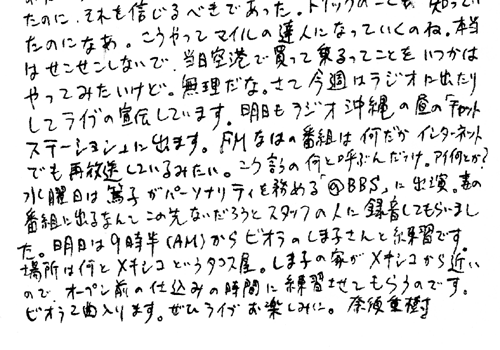 たのに、それも信じるべきであった。トリックの
たのになあ。こうやってマイルの達人になっていくのね。本当
はせんせんしないで、当日空港で買って乗るってことをいつかは
やってみたいけど。無理だな。さて今週はラジオに出たり
してライブの宣伝しています。明日もラジオ沖縄の昼の「チャット
ステーション」に出ます。FMなはの番組は何だかインターネット
でも再放送しているみたい。こう言うの何と呼ぶんだっけ。アイ何とか?
水曜日は篤子がパーソナリティを務める「BBS」に出演。妻の
番組に出るなんてこの先ないだろうとスタッフの人に録音してもらいまし
た。明日は9時半(AM)からビオラのしま子さんと練習です。
場所は何とメキシコというタコス屋。しま子の家がメキシコから近い
ので、オープン前の仕込みの時間に練習させてもらうのです。
ビオラ2曲入ります。ぜひライブお楽しみに。 奈須重樹